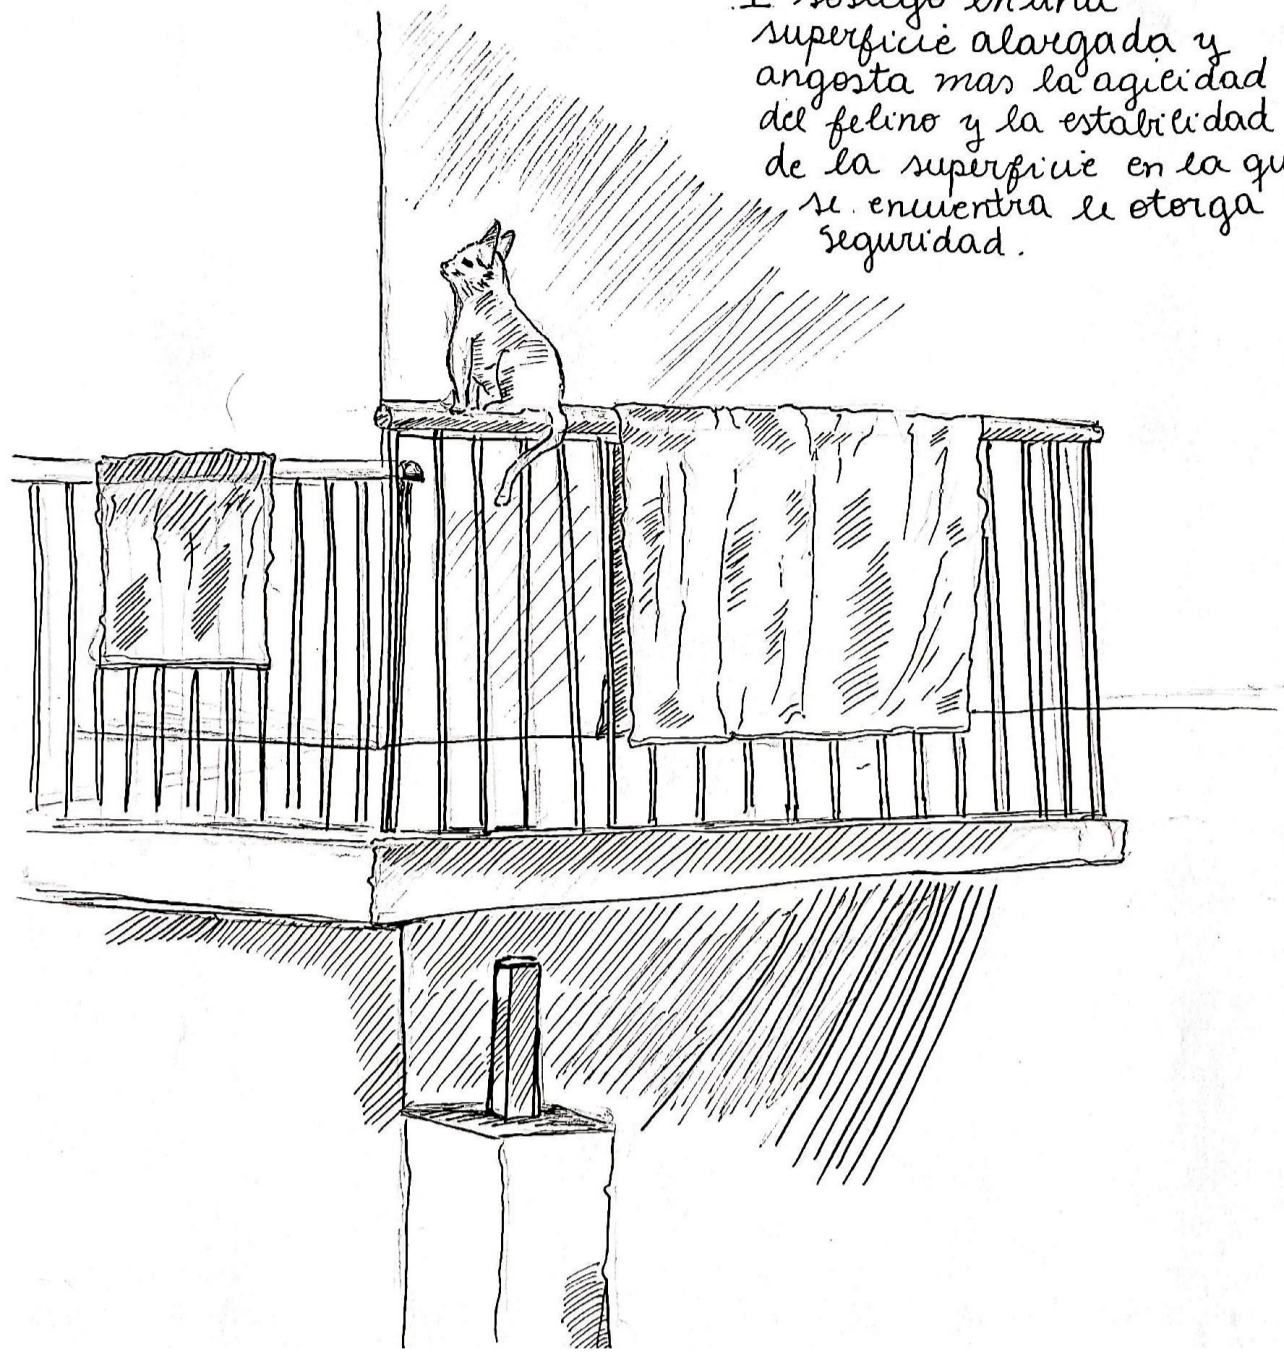 sosiego en una
superficie alargada y
angosta mas la agilidad
del felino y la estabilidad
de la superficie en la qu
se encuentra le otorga
seguridad.